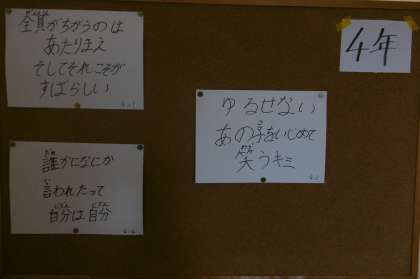 4年
全員がちがうのは
あたりまえ
そしてそれこそが
すばらしい
4-1
ゆるせない
あの子をいじめて
笑うキミ
誰かになにか
言われたって
自分は自分